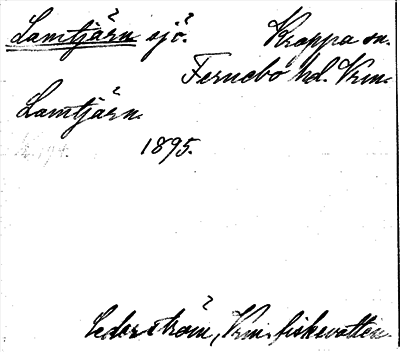 Lamtjärn sjö. Kroppa sn.
Fernebo hd. Vrm.
Lamtjärn.
1895.
Cederström, Vrm. fiskevatten.